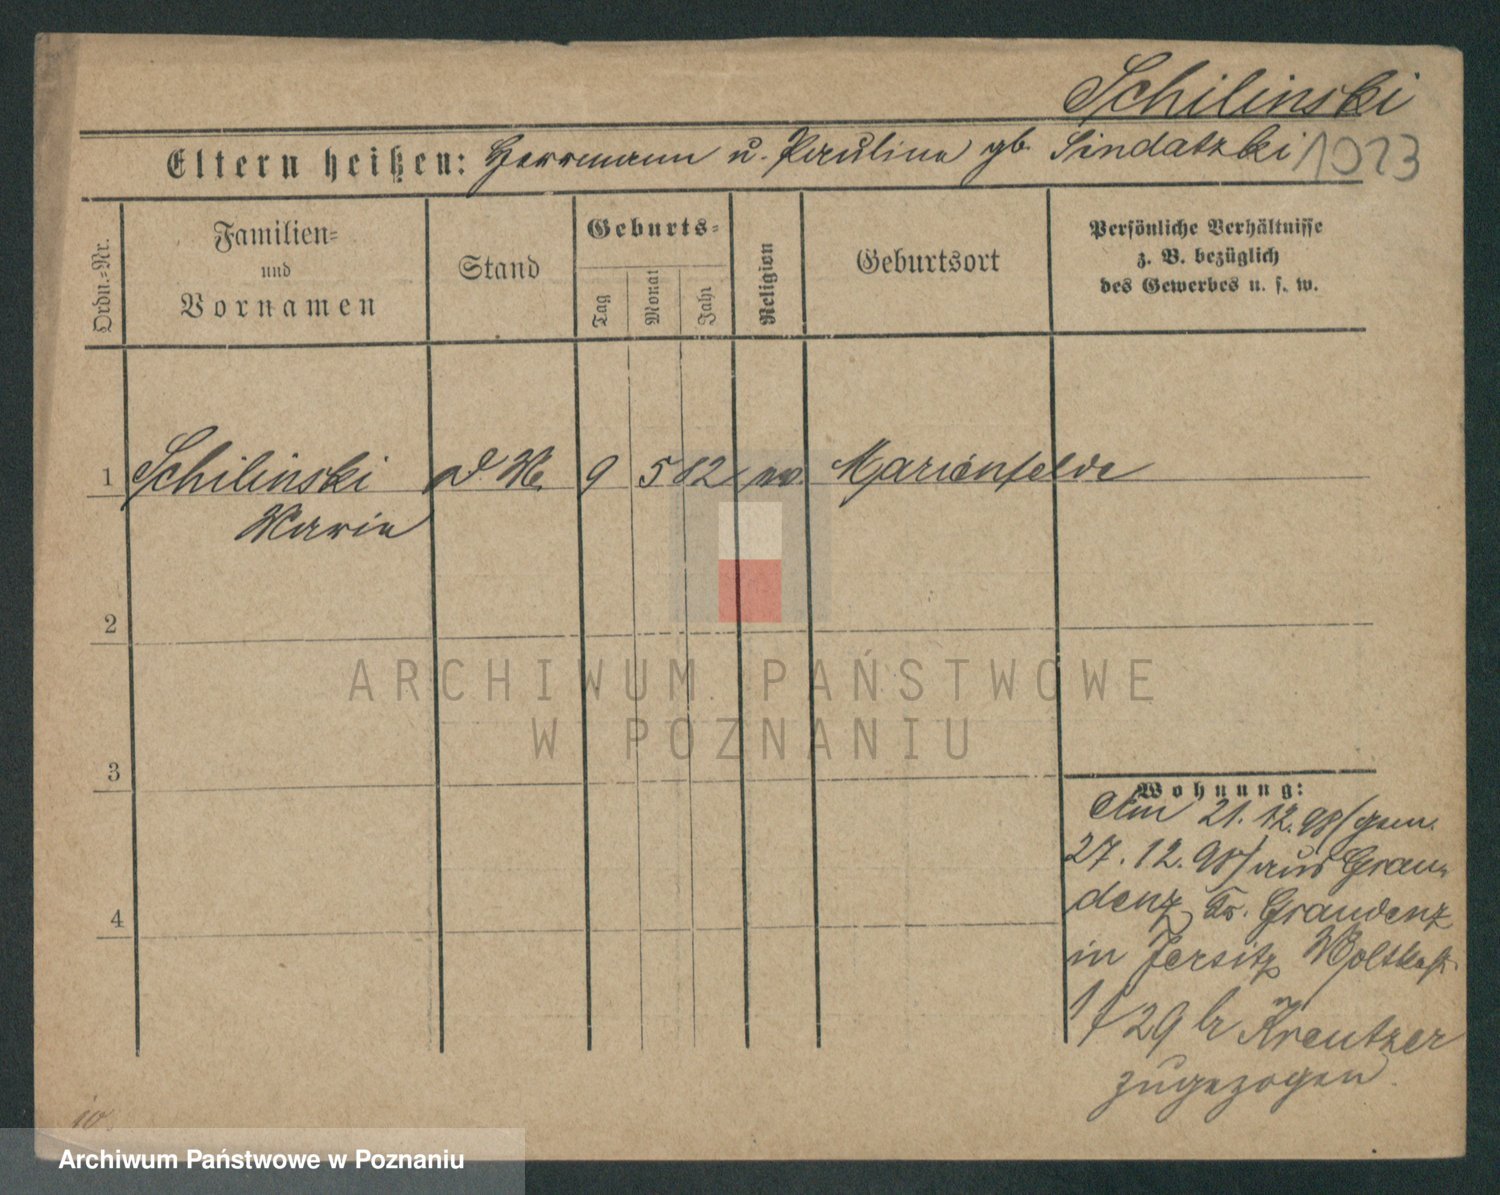 Schilinski
Eltern heißen: Herrmann u. Paulina gb. Sindatzki 1023
Ordn.-Nr.
Familien-
und
Vornamen
Stand
Geburts-
Tag
Monat
Jahr
Religion
Geburtsort
Persönliche Verhältnisse
z. B. bezüglich
des Gewerbes u. s. w.
1 Schilinski 9 5 82 Marienfelde
Marie
2
3
4
Wohnung:
Am 21.12.98/gem.
27.12.98/aus Grau-
denz, Kr. Graudenz
in Jersitz
29 Kreutzer
zugezogen.
ARCHIWUM PAŃSTWOWE
W POZNANIU
Archiwum Państwowe w Poznaniu